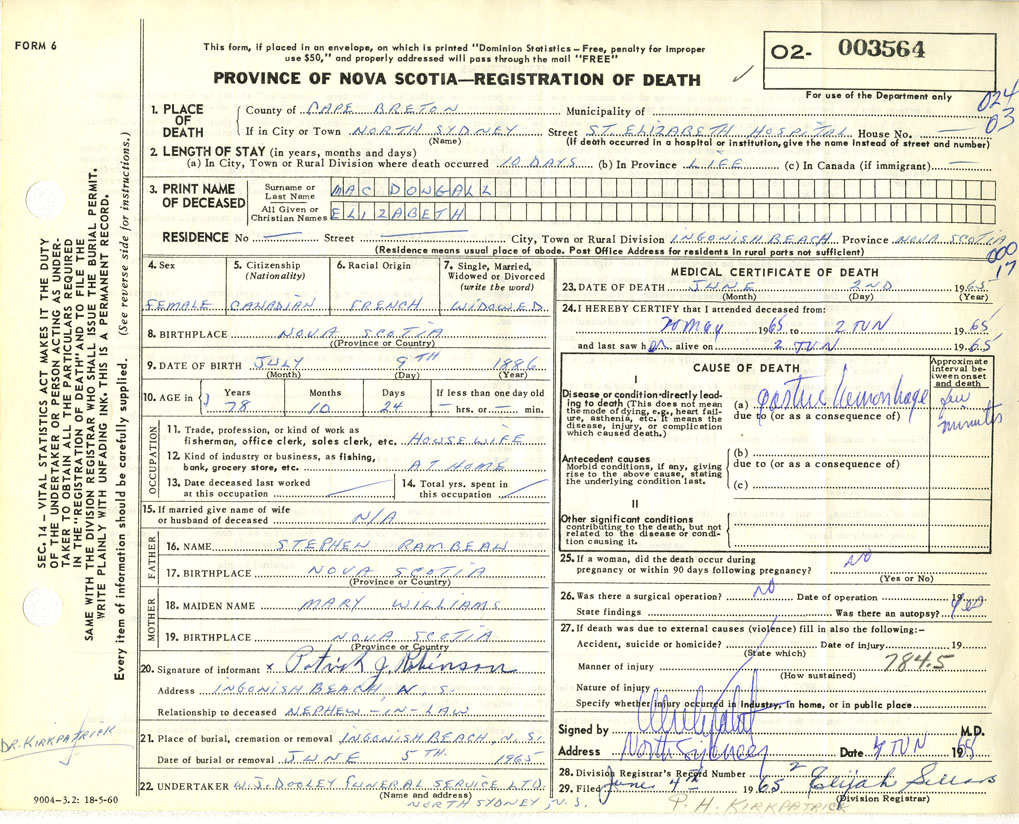 FORM 6
This form, if placed in an envelope, on which is printed "Dominion Statistics – Free, penalty for improper
use $50," and properly addressed will pass through the mail "FREE"
PROVINCE OF NOVA SCOTIA—REGISTRATION OF DEATH
O2- 003564
For use of the Department only
024
03
SEC. 14 – VITAL STATISTICS ACT MAKES IT THE DUTY
OF THE UNDERTAKER OR PERSON ACTING AS UNDER-
TAKER TO OBTAIN ALL THE PARTICULARS REQUIRED
IN THE "REGISTRATION OF DEATH" AND TO FILE THE
SAME WITH THE DIVISION REGISTRAR WHO SHALL ISSUE THE BURIAL PERMIT.
WRITE PLAINLY WITH UNFADING INK. THIS IS A PERMANENT RECORD.
Every item of information should be carefully supplied. (See reverse side for instructions.)
1. PLACE OF DEATH
County of CAPE BRETON Municipality of
If in City or Town NORTH SYDNEY Street ST. ELIZABETH HOSPITAL House No. —
(Name) (If death occurred in a hospital or institution, give the name instead of street and number)
2. LENGTH OF STAY (in years, months and days)
(a) In City, Town or Rural Division where death occurred 10 DAYS (b) In Province LIFE (c) In Canada (if immigrant) —
3. PRINT NAME OF DECEASED
Surname or Last Name MAC DONGALL
All Given or Christian Names ELIZABETH
RESIDENCE No — Street — City, Town or Rural Division INGONISH BEACH Province NOVA SCOTIA
(Residence means usual place of abode. Post Office Address for residents in rural parts not sufficient)
000
17
4. Sex FEMALE
5. Citizenship (Nationality) CANADIAN
6. Racial Origin FRENCH
7. Single, Married, Widowed or Divorced (write the word) WIDOWED
8. BIRTHPLACE NOVA SCOTIA
(Province or Country)
9. DATE OF BIRTH JULY 9TH 1886
(Month) (Day) (Year)
10. AGE in } Years Months Days If less than one day old
78 10 24 — hrs. or — min.
OCCUPATION
11. Trade, profession, or kind of work as
fisherman, office clerk, sales clerk, etc. HOUSEWIFE
12. Kind of industry or business, as fishing,
bank, grocery store, etc. AT HOME
13. Date deceased last worked
at this occupation
14. Total yrs. spent in
this occupation
15. If married give name of wife
or husband of deceased N/A
FATHER
16. NAME STEPHEN RAMBEAU
17. BIRTHPLACE NOVA SCOTIA
(Province or Country)
MOTHER
18. MAIDEN NAME MARY WILLIAMS
19. BIRTHPLACE NOVA SCOTIA
(Province or Country)
20. Signature of informant x Patrick J. Robinson
Address INGONISH BEACH, N. S.
Relationship to deceased NEPHEW-IN-LAW
21. Place of burial, cremation or removal INGONISH BEACH, N.S.
Date of burial or removal JUNE 5TH 1965
22. UNDERTAKER W.J. DOOLEY FUNERAL SERVICE LTD.
(Name and address)
NORTH SYDNEY, N.S.
DR. KIRKPATRICK
9004-3.2: 18-5-60
MEDICAL CERTIFICATE OF DEATH
23. DATE OF DEATH JUNE 2ND 1965
(Month) (Day) (Year)
24. I HEREBY CERTIFY that I attended deceased from:
20 May 1965 to 2 JUN 1965
and last saw her alive on 2 JUN 1965
CAUSE OF DEATH
Approximate interval between onset and death
I
Disease or condition directly leading to death (This does not mean the mode of dying, e.g., heart failure, asthenia, etc. It means the disease, injury, or complication which caused death.)
(a) gastric hemorrhage few minutes
due to (or as a consequence of)
Antecedent causes
Morbid conditions, if any, giving rise to the above cause, stating the underlying condition last.
(b)
due to (or as a consequence of)
(c)
II
Other significant conditions
contributing to the death, but not related to the disease or condition causing it.
25. If a woman, did the death occur during
pregnancy or within 90 days following pregnancy? no
(Yes or No)
26. Was there a surgical operation? no Date of operation 19
State findings Was there an autopsy? yes
27. If death was due to external causes (violence) fill in also the following:–
Accident, suicide or homicide? Date of injury 19
(State which)
Manner of injury 784.5
(How sustained)
Nature of injury
Specify whether injury occurred in industry, in home, or in public place
Signed by M.D.
Address North Sydney Date 4 JUN 1965
28. Division Registrar's Record Number 2
29. Filed June 4th 1965 Elijah Sellars
(Division Registrar)
P. H. KIRKPATRICK